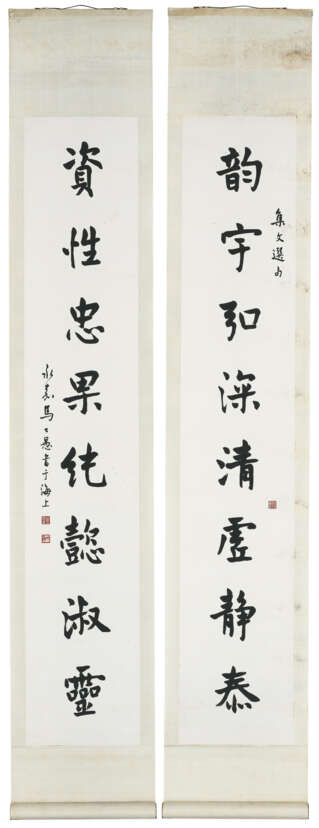 韵宇弘深清虚静泰
集文選句
資性忠果純懿淑靈
永嘉馬公愚書于海上